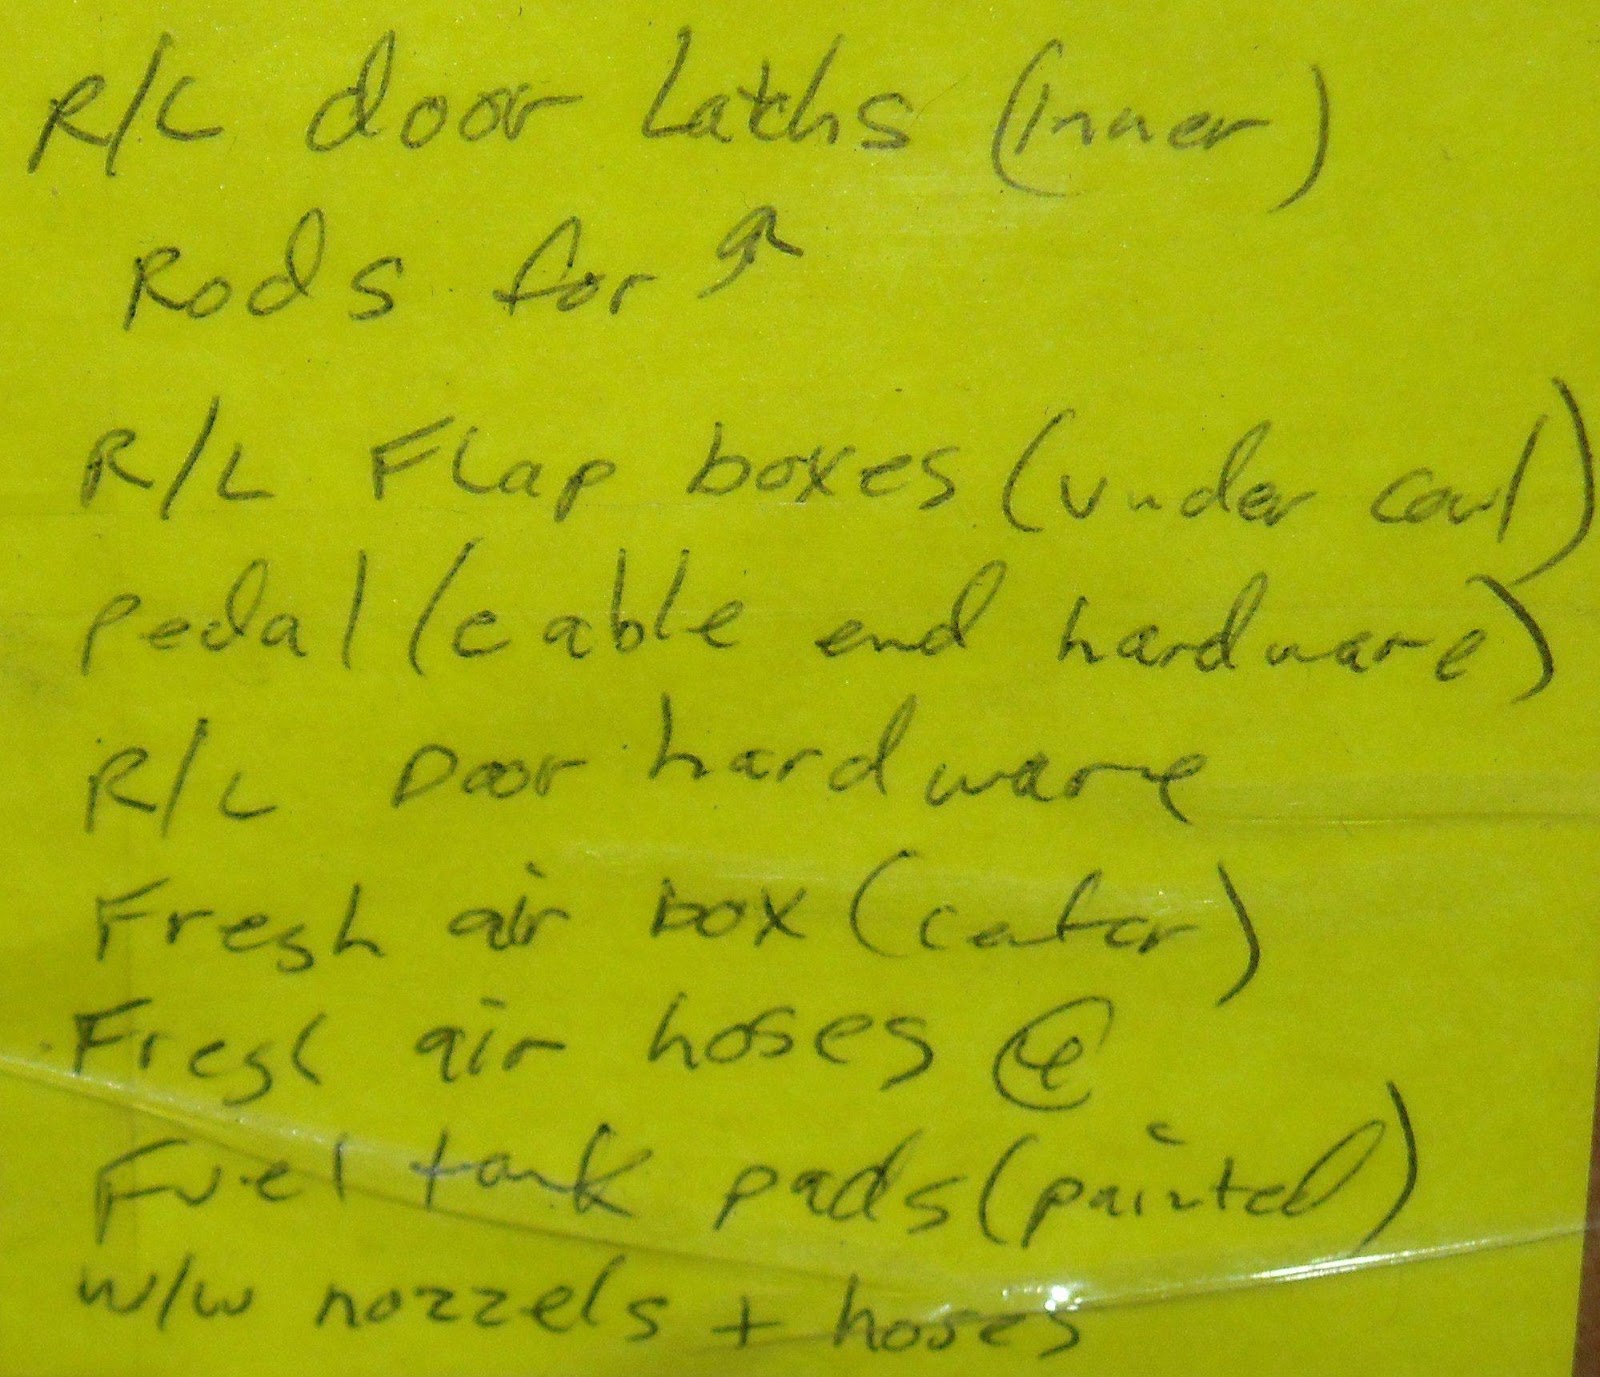 R/L door Latchs (inner)
Rods for ↗
R/L Flap boxes (under cowl)
pedal (cable end hardware)
R/L Door hardware
Fresh air box (center)
Fresh air hoses
Fuel tank pads (painted)
w/w nozzels + hoses